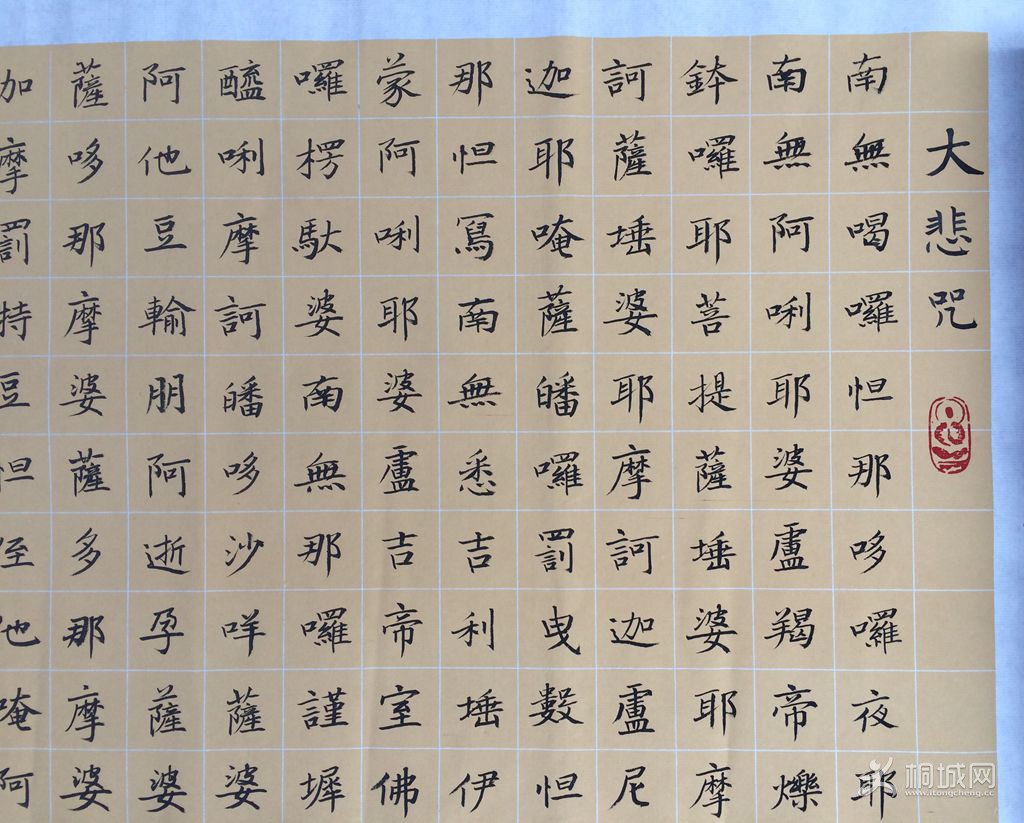 大悲咒
南無喝囉怛那哆囉夜耶
南無阿唎耶婆盧羯帝爍
鉢囉耶菩提薩埵婆耶摩
訶薩埵婆耶摩訶迦盧尼
迦耶唵薩皤囉罰曳數怛
那怛寫南無悉吉利埵伊
蒙阿唎耶婆盧吉帝室佛
囉楞馱婆南無那囉謹墀
醯唎摩訶皤哆沙咩薩婆
阿他豆輸朋阿逝孕薩婆
薩哆那摩婆薩多那摩婆
伽摩罰特豆怛侄他唵阿
桐城网
www.itongcheng.cc